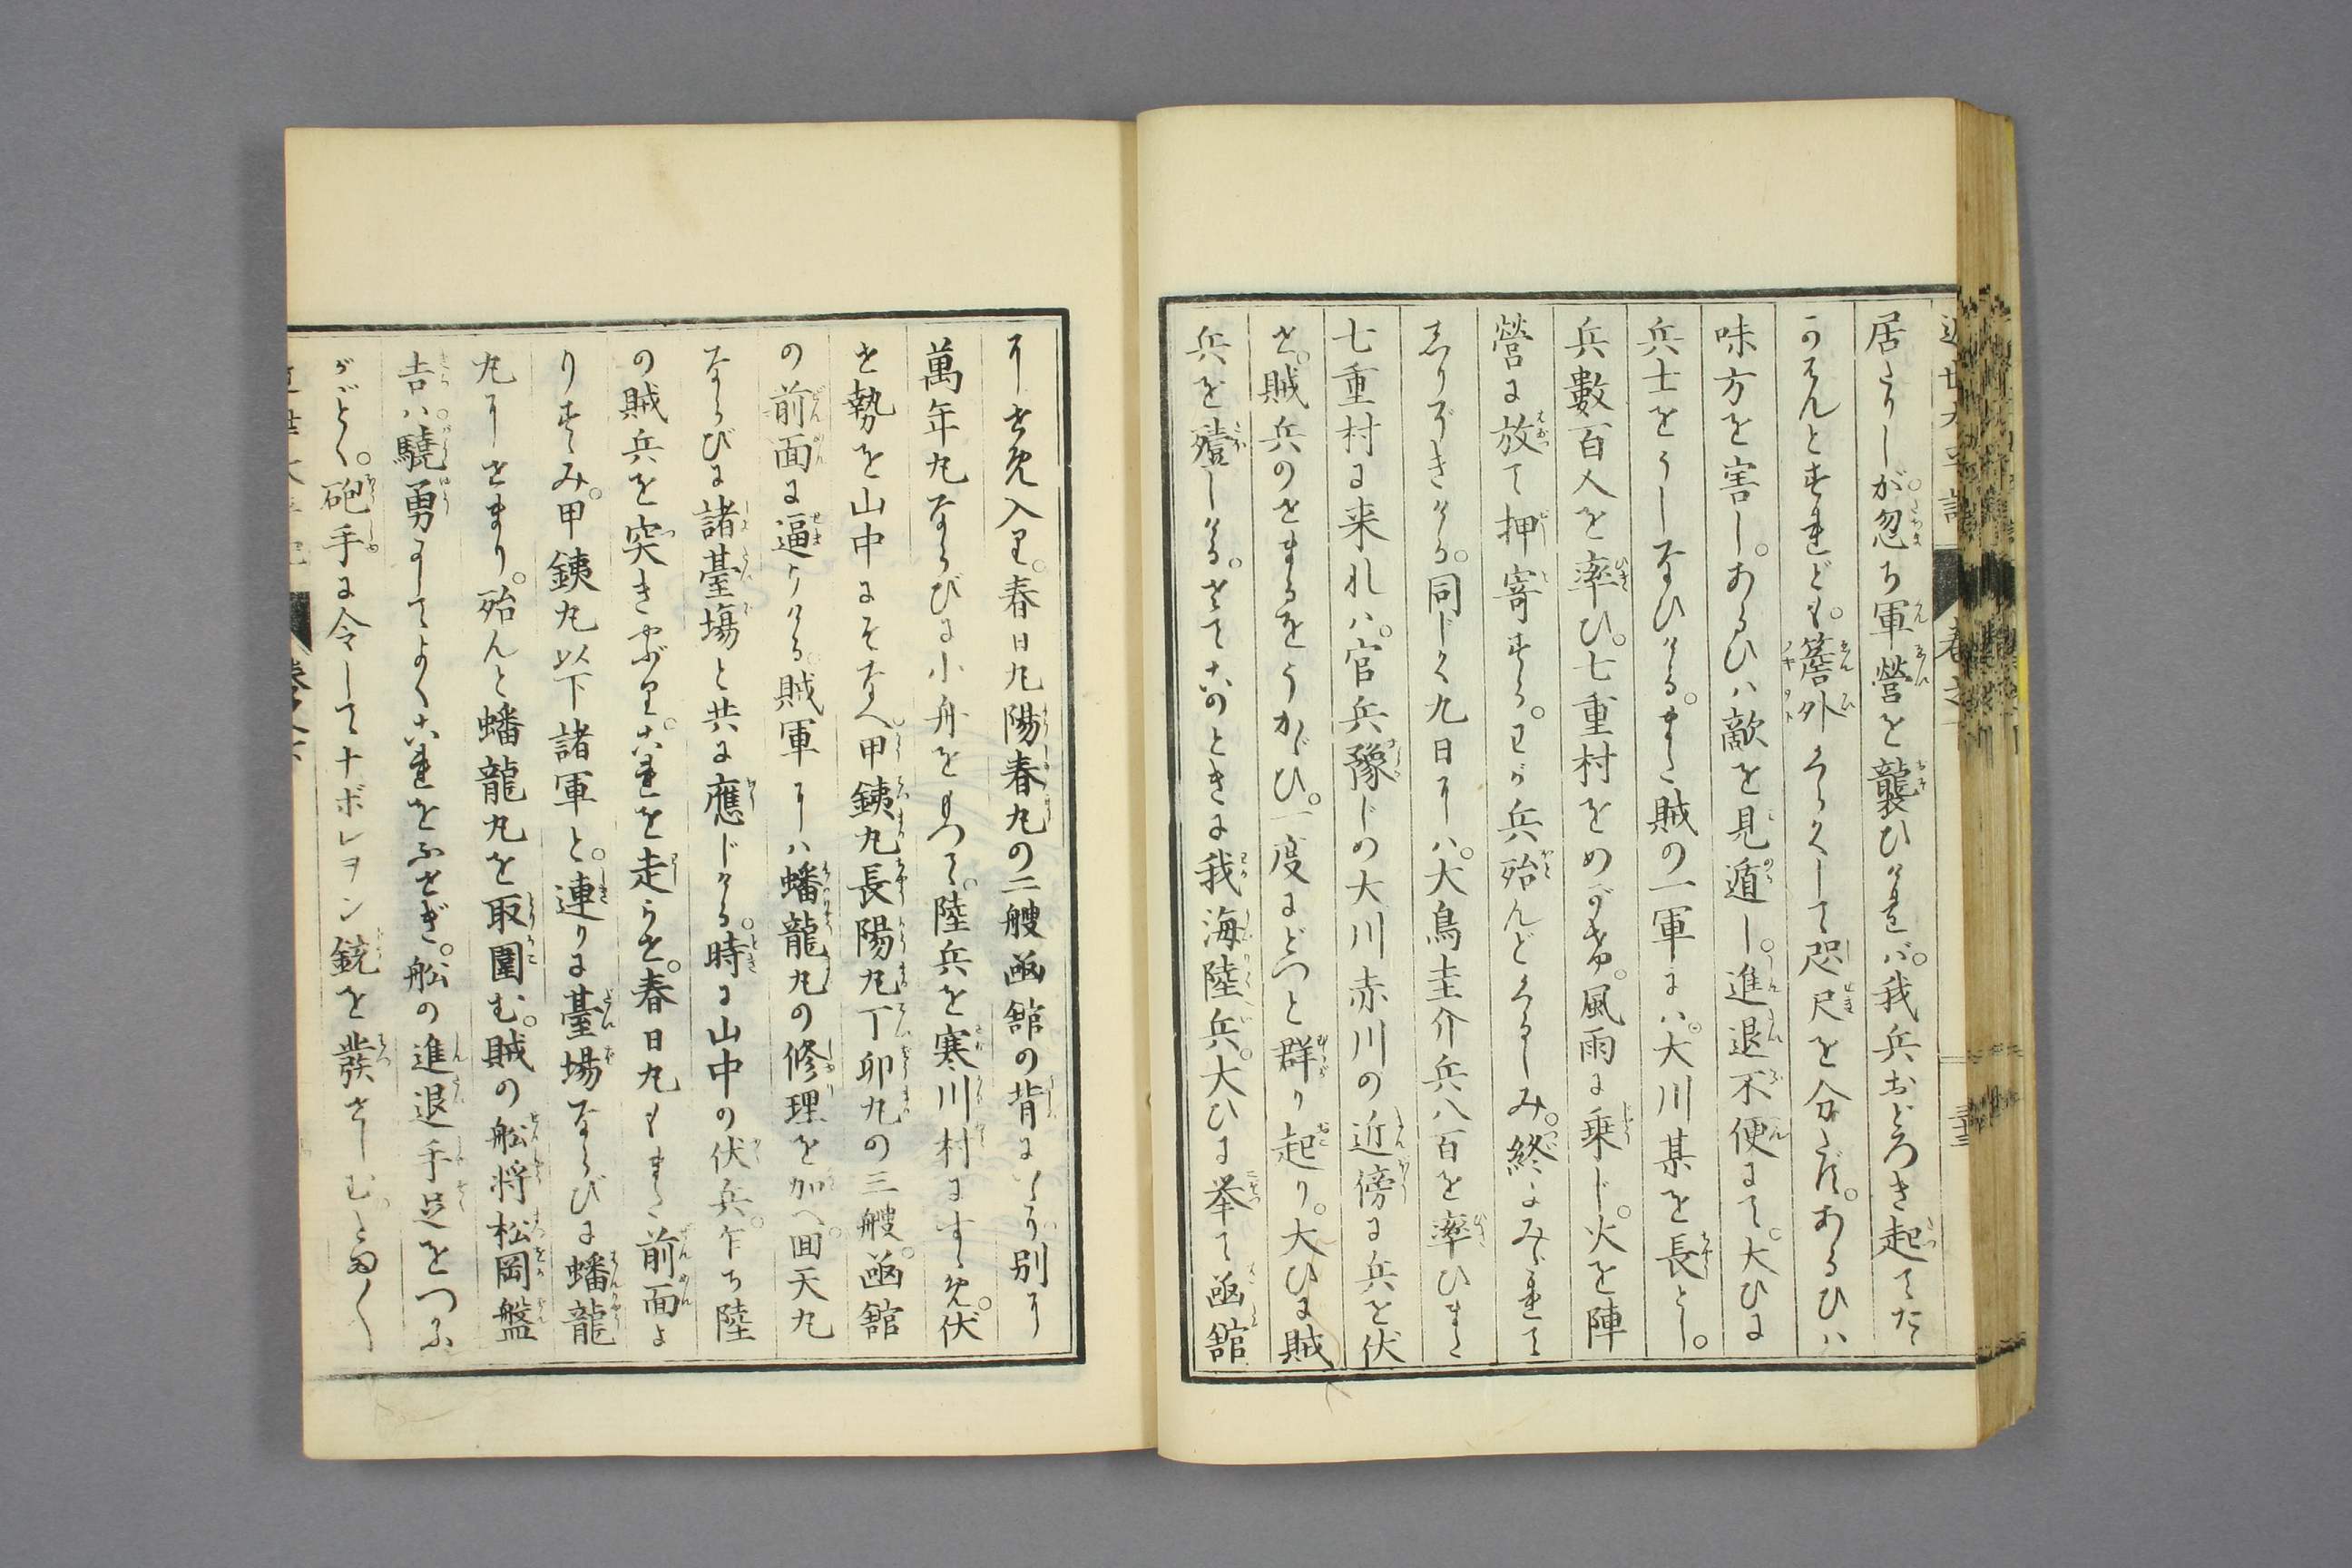 居たりしが。忽ち軍營を襲ひければ。我兵おどろき起てたゝ
かはんとすれども。簷外くらくして咫尺を分たず。あるひハ
味方を害し。あるひハ敵を見遁し。進退不便にて。大ひに
兵士をうしなひける。また賊の一軍にハ。大川某を長とし。
兵數百人を率ひ。七重村をめがけ。風雨に乗じ。火を陣
營に放て押寄する。わが兵殆んどくるしみ。終にみだれて
しりぞきける。同じく九日にハ。大鳥圭介兵八百を率ひまた
七重村に来れハ。官兵豫じめ大川赤川の近傍に兵を伏
せ。賊兵のせまるをうかゞひ。一度にどつと群り起り。大ひに賊
兵を殪しける。さてこのときに我海陸兵。大ひに挙て凾舘
にせめ入り。春日丸陽春丸の二艘凾舘の背にいたり別に
萬年丸ならびに小舟をもつて。陸兵を寒川村にすゝめ。伏
せ勢を山中にそなへ。甲銕丸長陽丸丁卯丸の三艘。凾舘
の前面に逼りける。賊軍にハ蟠龍丸の修理を加へ。回天丸
ならびに諸臺塲と共に應じける。時に山中の伏兵。乍ち陸
の賊兵を突きやぶり。これを走らせ。春日丸もまた前面よ
りすゝみ。甲銕丸以下諸軍と。連りに臺場ならびに蟠龍
丸にせまり。殆んと蟠龍丸を取圍む。賊の舩將松岡盤
吉ハ。驍勇にしてよくこれをふせぎ。舩の進退手足をつかふ
がごとく。砲手に令してナボレヲン銃を發さしむ